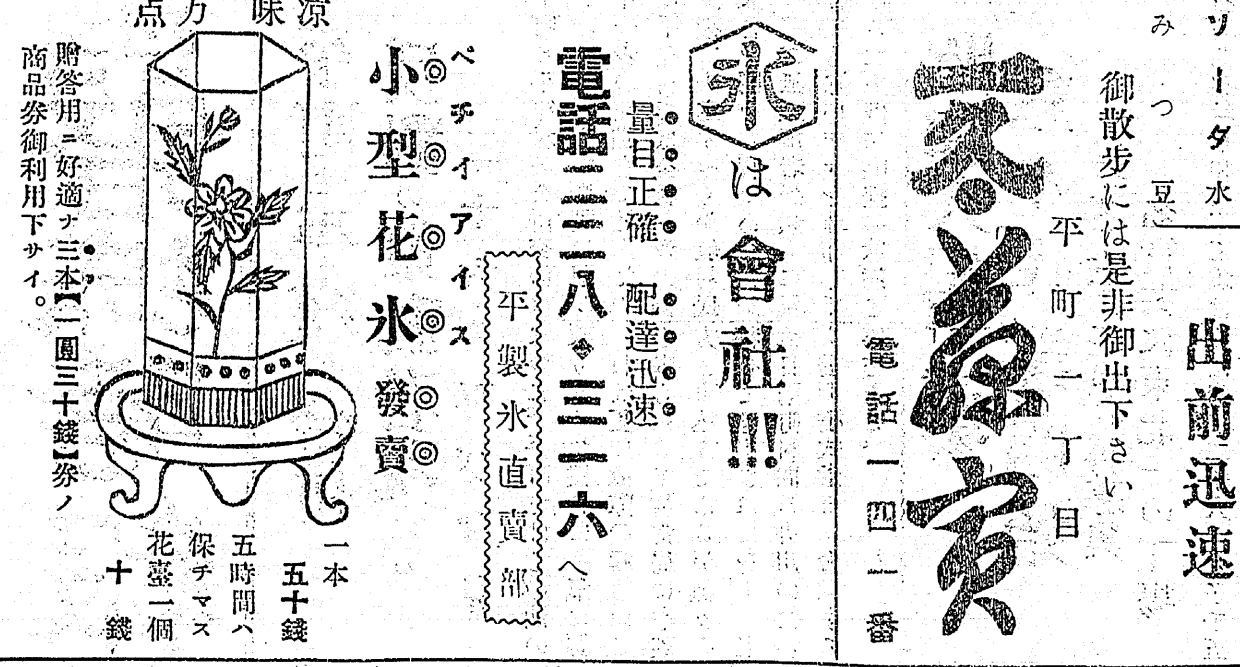 ソーダ水
みつ豆
出前迅速
御散歩には是非御出下さい
平町一丁目
電話一四一番
氷は會社!!!
量目正確 配達迅速
電話二三八◆三一六へ
平製氷直賣部
ペチイアイス
小型花氷發賣
一本
五十錢
五時間ハ
保チマス
花臺一個
十錢
涼味万点
贈答用ニ好適ナ三本【一圓三十錢】券ノ
商品券御利用下サイ。